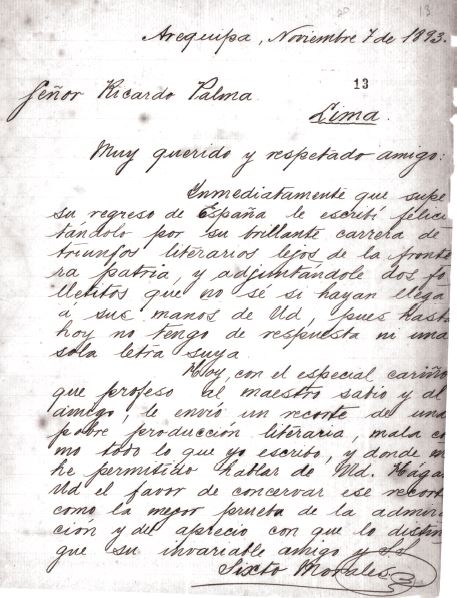 13
Arequipa, Noviembre 7 de 1893.
13
Señor Ricardo Palma
Lima.
Muy querido y respetado amigo:
Inmediatamente que supe
su regreso de España le escribí felici
tándolo por su brillante carrera de
triunfos literarios lejos de la fronte
ra patria, y adjuntándole dos fo
lletitos que no sé si hayan llega
á sus manos de Ud, pues hasta
hoy no tengo de respuesta ni una
sola letra suya.
Hoy, con el especial cariño
que profeso al maestro sabio y al
amigo, le envío un recorte de una
pobre producción literaria, mala co
mo todo lo que yo escribo, y donde m
he permitido hablar de Ud. Hága
Ud el favor de concervar ese recort
como la mejor prueba de la admir
ción y del aprecio con que lo distin
gue su invariable amigo y SS
Sixto Morales